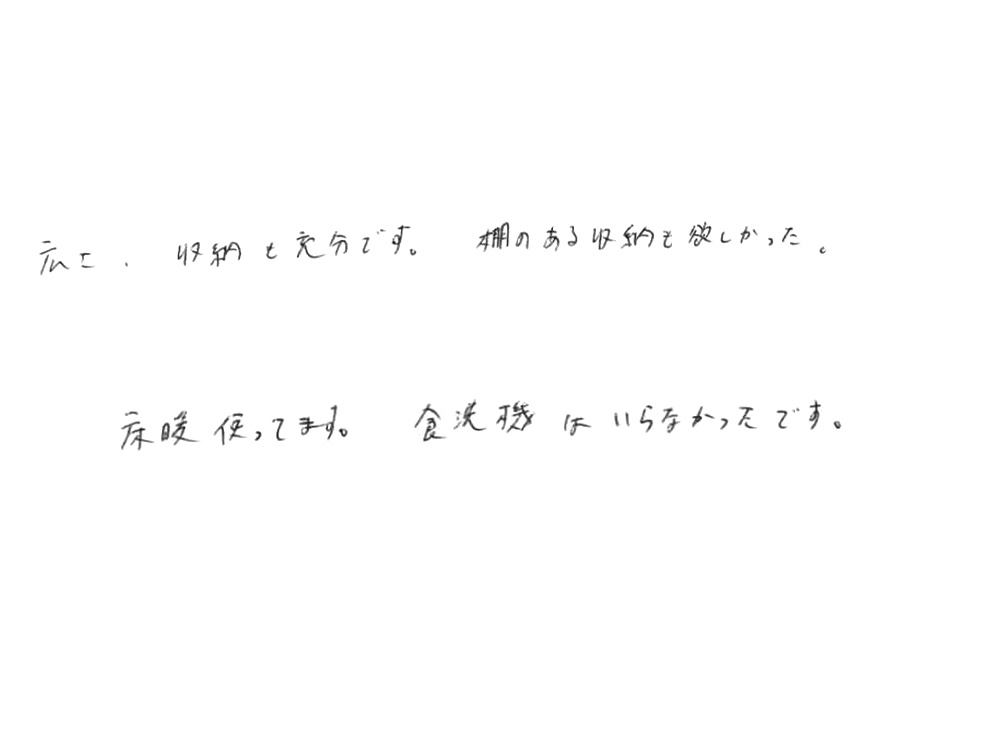 広さ、収納も充分です。 棚のある収納も欲しかった。
床暖使ってます。 食洗機はいらなかったです。